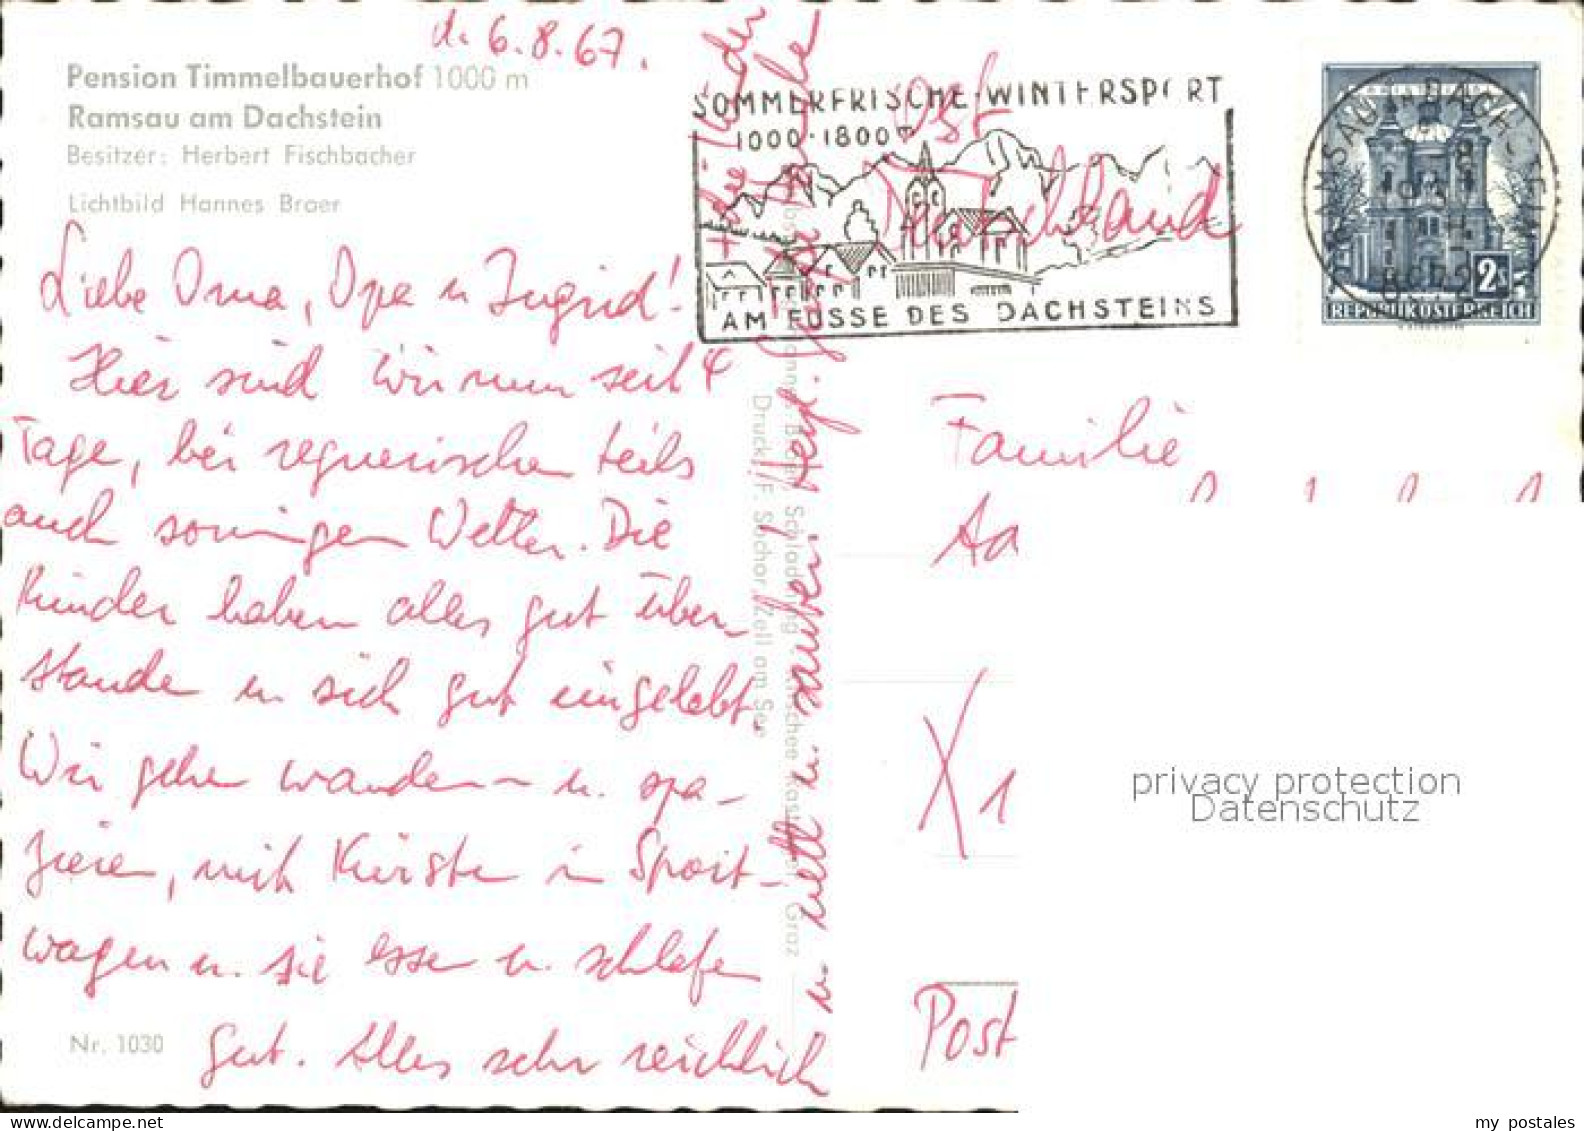 d. 6.8.67.
Pension Timmelbauerhof 1000 m
Ramsau am Dachstein
Besitzer: Herbert Fischbacher
Lichtbild Hannes Braer
Liebe Oma, Opa u Ingrid!
Hier sind wir nun seit 4
Tage, bei regnerischen teils
auch sonnigen Wetter. Die
Kinder haben alles gut über-
standen u sich gut eingelebt.
Wir gehen wandern u. spa-
zieren, mit Kirsten in Sport-
wagen u. sie essen u. schlafen
gut. Alles sehr reichlich
u. nett u. sauber! Herzl.
Nr. 1030
Druck: F. Sochor, Zell am See
Schladming
Graz
SOMMERFRISCHE · WINTERSPORT
1000-1800 m
AM FUSSE DES DACHSTEINS
RAMSAU AM DACHSTEIN
8972
2S
REPUBLIK ÖSTERREICH
Ost
Deutschland
Familie
Aa
X 1
Post
privacy protection
Datenschutz
my postales